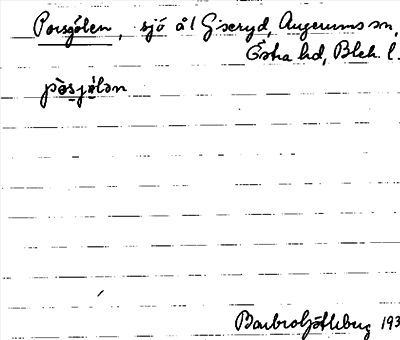 Porsgölen, sjö å l Giseryd, Augerums sn,
Östra hd, Blek. l.
pòsjø̀lan
Barbro Götleburg 193